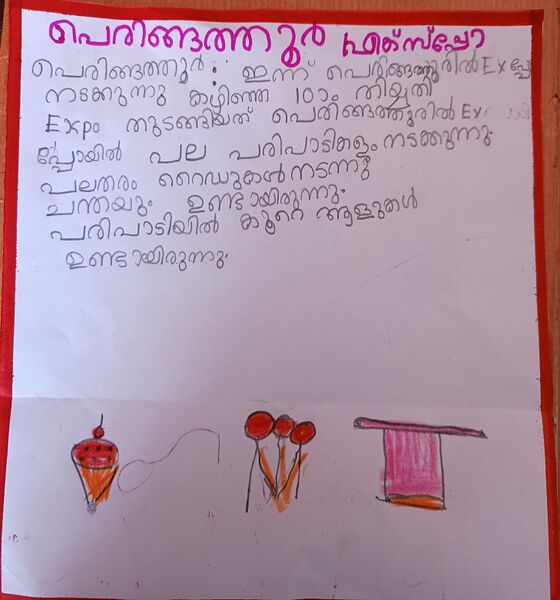 പെരിങ്ങത്തൂർ എക്സ്പ്പോ
പെരിങ്ങത്തൂർ: ഇന്ന് പെരിങ്ങത്തൂരിൽ Ex
നടക്കുന്നു കഴിഞ്ഞ 10ാം തിയ്യതി
Expo തുടങ്ങിയത് പെരിങ്ങത്തൂരിൽ Ex
പ്പോയിൽ പല പരിപാടികളും നടക്കുന്നു.
പലതരം റൈഡുകൻ നടന്നു
ചന്തയും ഉണ്ടായിരുന്നു.
പരിപാടിയിൽ കൂറെ ആളുതൾ
ഉണ്ടായിരുന്നു.